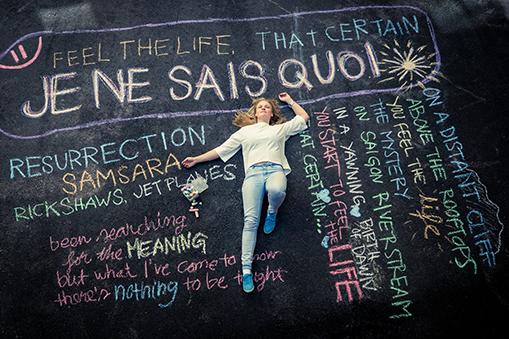 FEEL THE LIFE. THAT CERTAIN
JE NE SAIS QUOI
RESURRECTION
SAMSARA
RICKSHAWS, JETPLANES
been searching
for the MEANING
but what I've come to know
there's nothing to be
ON A DISTANT CLIFF
ABOVE THE ROOFTOPS
YOU FEEL THE Life
THE MYSTERY
ON SAIGON RIVERSTREAM
IN A YAWNING BIRTH OF DAWN
YOU START TO FEEL THE LIFE
THAT CERTAIN...